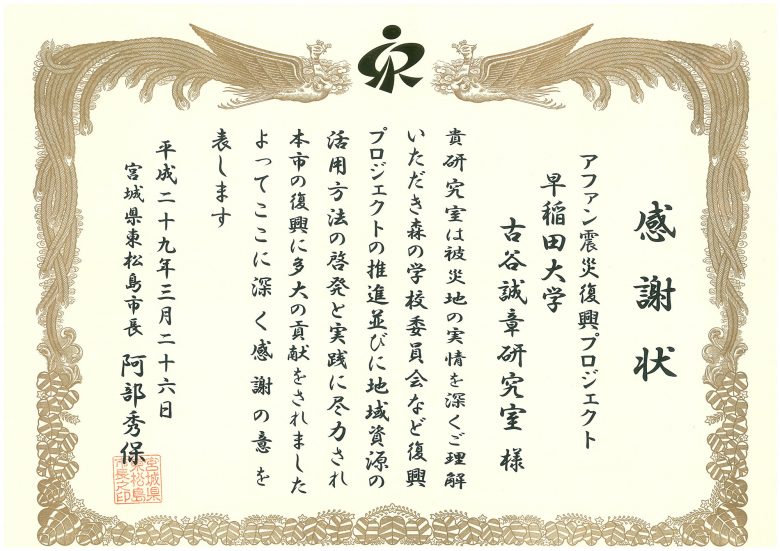 感謝状
アファン震災復興プロジェクト
早稲田大学
古谷誠章研究室 様
貴研究室は被災地の実情を深くご理解
いただき森の学校委員会など復興
プロジェクトの推進並びに地域資源の
活用方法の啓発と実践に尽力され
本市の復興に多大の貢献をされました
よってここに深く感謝の意を
表します
平成二十九年三月二十六日
宮城県東松島市長 阿部秀保
宮城県
東松島
市長之印